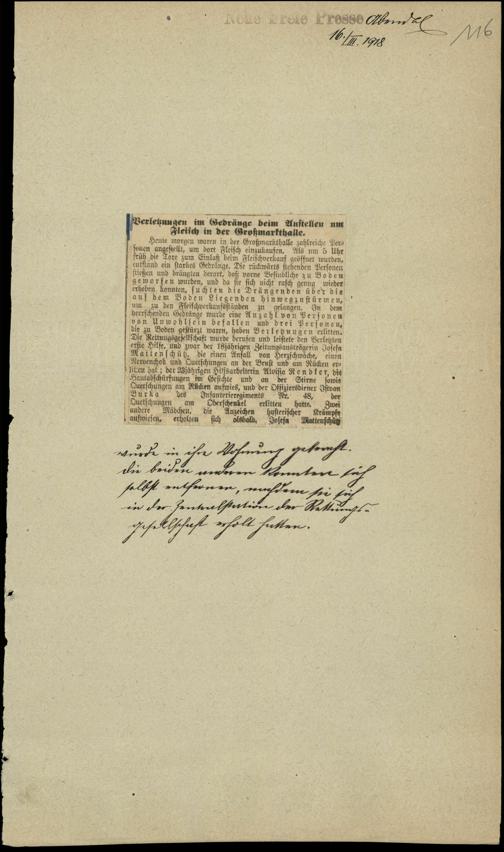 Neue Freie Presse Abendbl
16./III. 1918
116
Verletzungen im Gedränge beim Anstellen um
Fleisch in der Großmarkthalle.
Heute morgen waren in der Großmarkthalle zahlreiche Per-
sonen angestellt, um dort Fleisch einzukaufen. Als um 5 Uhr
früh die Tore zum Einlaß beim Fleischverkauf geöffnet wurden,
entstand ein starkes Gedränge. Die rückwärts stehenden Personen
stießen und drängten derart, daß vorne Befindliche zu Boden
geworfen wurden, und da sie sich nicht rasch genug wieder
erheben konnten, suchten die Drängenden über die
auf dem Boden Liegenden hinwegzustürmen,
um zu den Fleischverkaufsständen zu gelangen. In dem
herrschenden Gedränge wurde eine Anzahl von Personen
von Unwohlsein befallen und drei Personen,
die zu Boden gestürzt waren, haben Verletzungen erlitten.
Die Rettungsgesellschaft wurde berufen und leistete den Verletzten
erste Hilfe, und zwar der 18jährigen Zeitungsausträgerin Josefa
Mattenschütz, die einen Anfall von Herzschwäche, einen
Nervenchok und Quetschungen an der Brust und am Rücken er-
litten hat; der 22jährigen Hilfsarbeiterin Aloisia Rendler, die
Hautabschürfungen im Gesichte und an der Stirne sowie
Quetschungen am Rücken aufwies, und der Offiziersdiener Istvan
Burka des Infanterieregiments Nr. 48, der
Quetschungen am Oberschenkel erlitten hatte. Zwei
andere Mädchen, die Anzeichen hysterischer Krämpfe
aufwiesen, erholten sich alsbald. Josefa Mattenschütz
wurde in ihre Wohnung gebracht.
Die beiden anderen konnten sich
selbst entfernen, nachdem sie sich
in der Zentralstation der Rettungs-
gesellschaft erholt hatten.